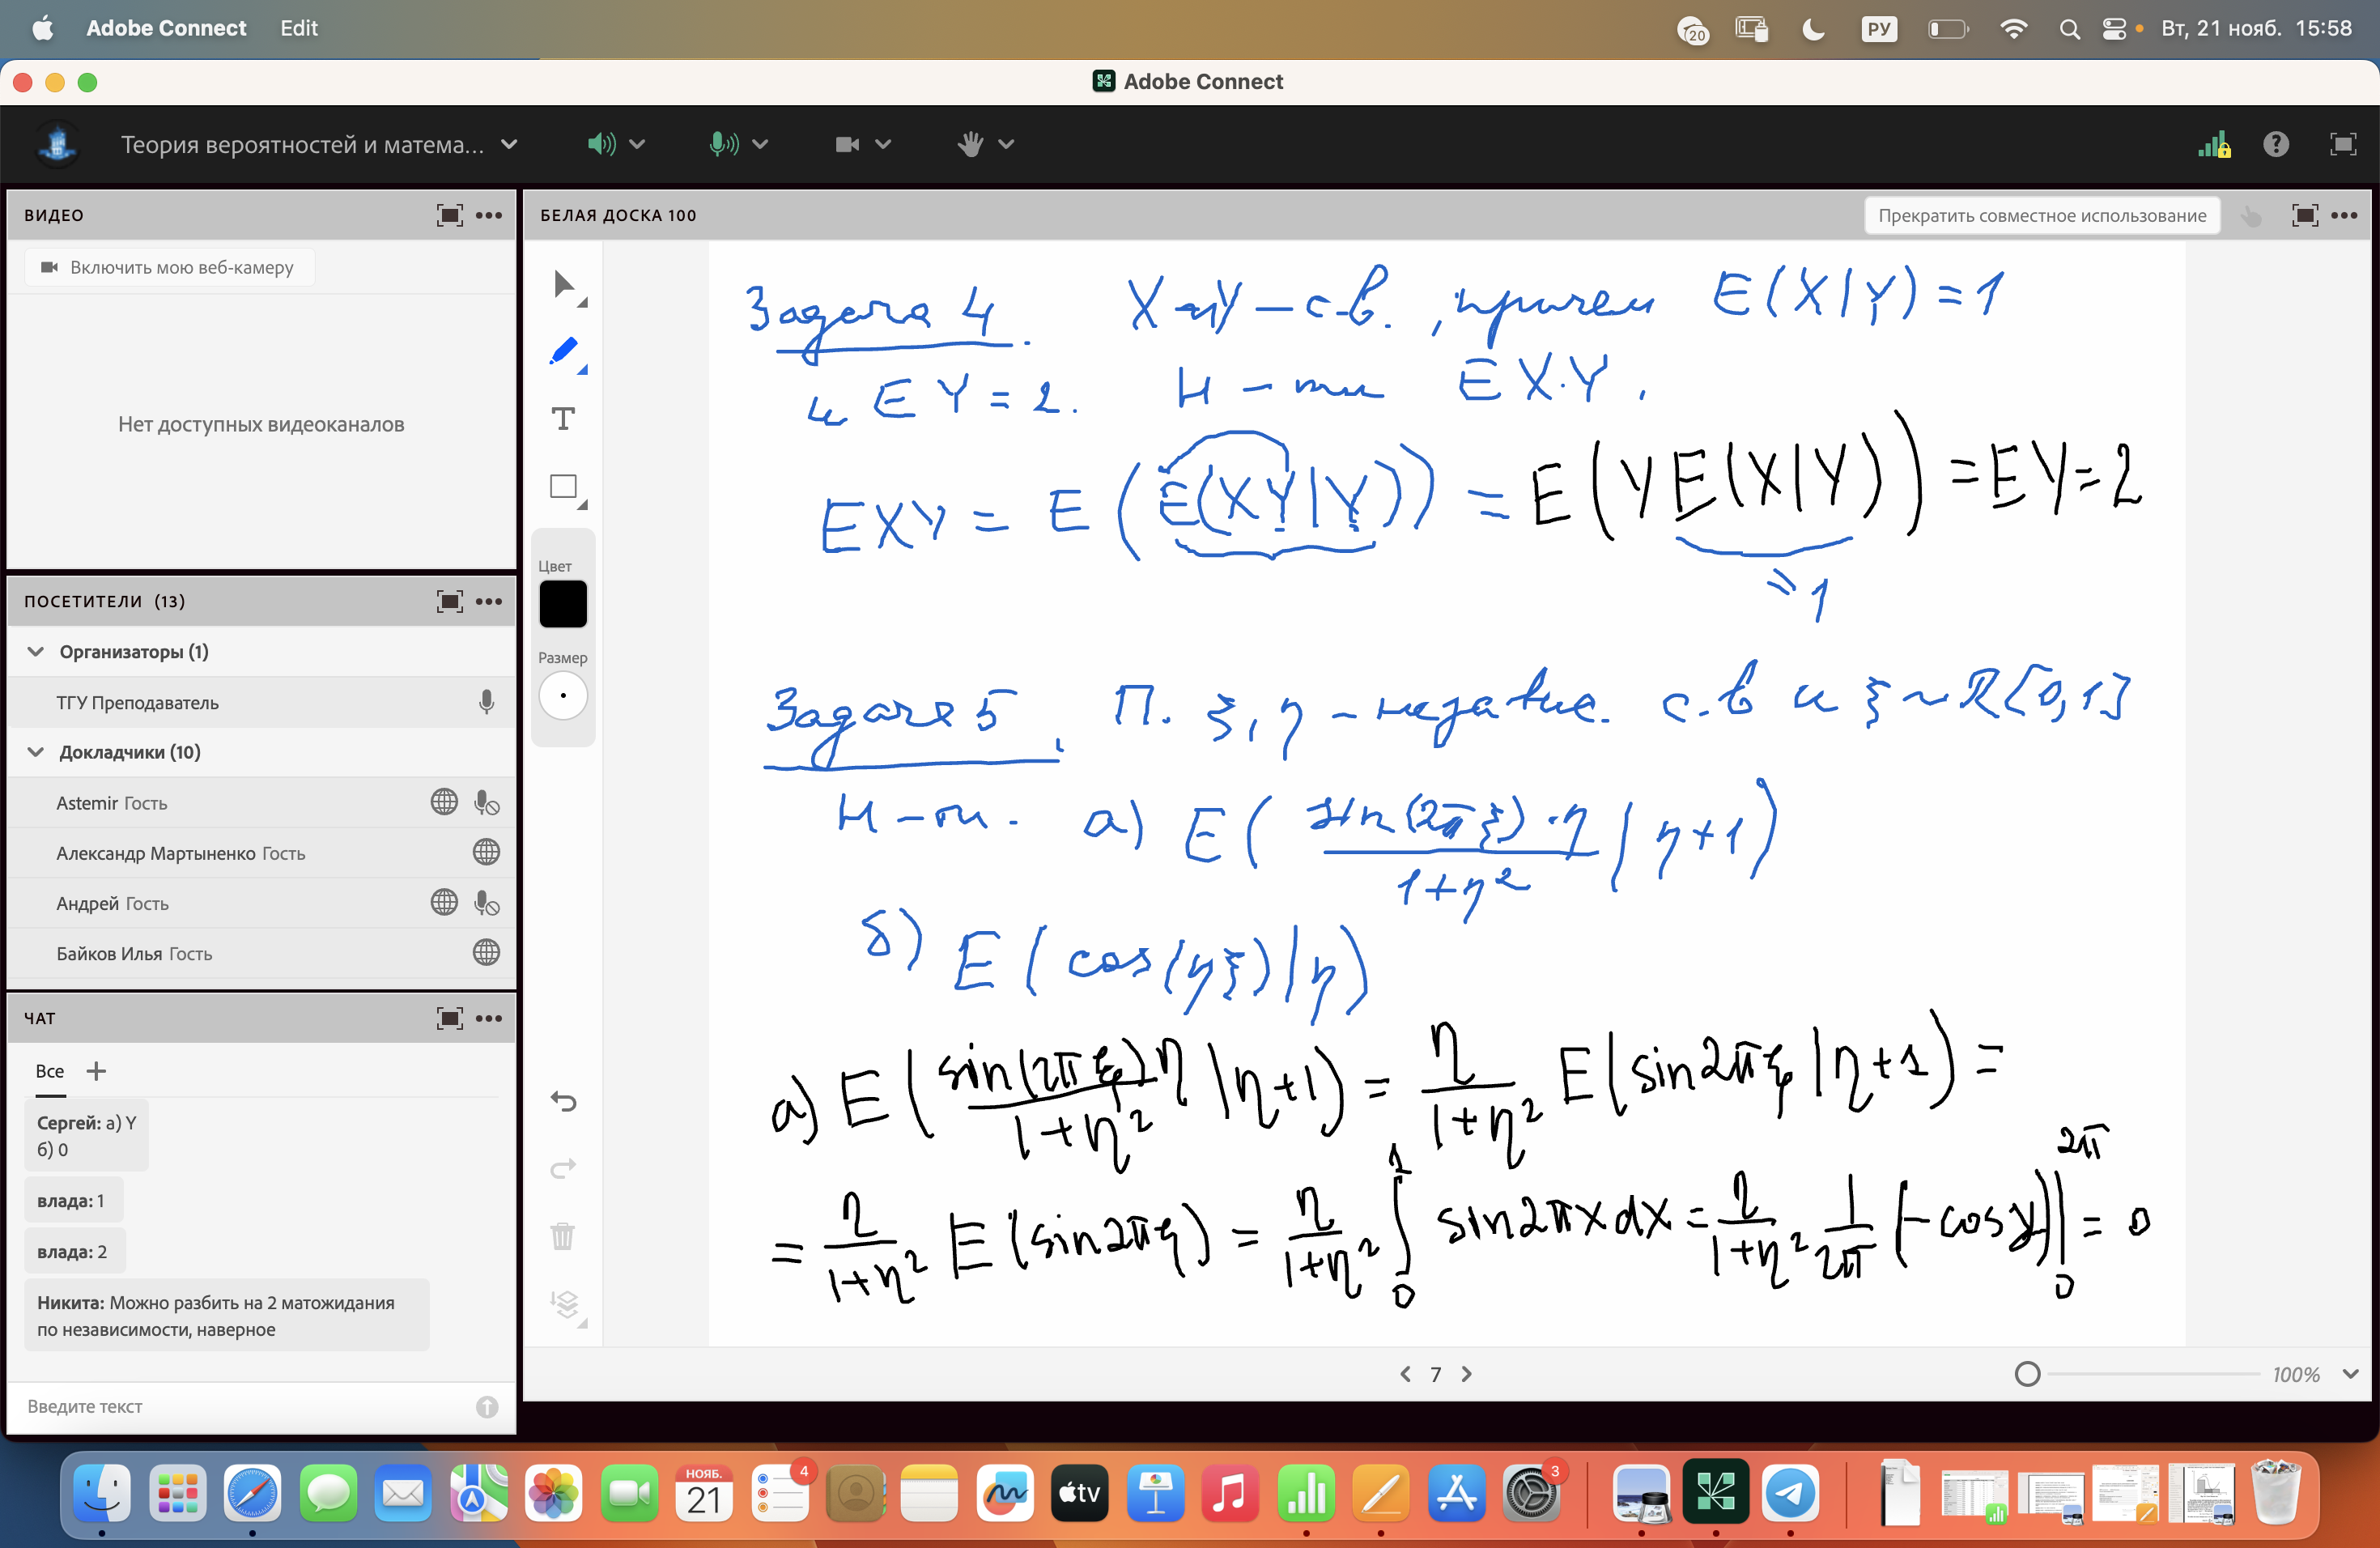 Adobe Connect Edit
20
РУ
Вт, 21 нояб. 15:58
Adobe Connect
Теория вероятностей и матема...
ВИДЕО
Включить мою веб-камеру
Нет доступных видеоканалов
ПОСЕТИТЕЛИ (13)
Организаторы (1)
ТГУ Преподаватель
Докладчики (10)
Astemir Гость
Александр Мартыненко Гость
Андрей Гость
Байков Илья Гость
ЧАТ
Все
Сергей: а) Y
б) 0
влада: 1
влада: 2
Никита: Можно разбить на 2 матожидания
по независимости, наверное
Введите текст
БЕЛАЯ ДОСКА 100
Прекратить совместное использование
T
Цвет
Размер
Задача 4. X и Y – с.в., причем E(X|Y) = 1
и E Y = 2. Н – ти E X·Y.
E X Y = E (E(XY|Y)) = E(Y E(X|Y)) = E Y = 2
= 1
Задача 5. П. ξ, η – независ. с.в и ξ ~ R[0,1]
Н – ти. а) E( sin(2πξ)·η / 1+η² | η+1)
б) E( cos(ηξ) | η)
а) E( sin(2πξ)η / 1+η² | η+1) = η / 1+η² E(sin2πξ | η+1) =
= η / 1+η² E(sin2πξ) = η / 1+η² ∫₀¹ sin2πx dx = η / 1+η² 1 / 2π (−cosy)|₀^2π = 0
7
100%
НОЯБ.
21
4
tv
3